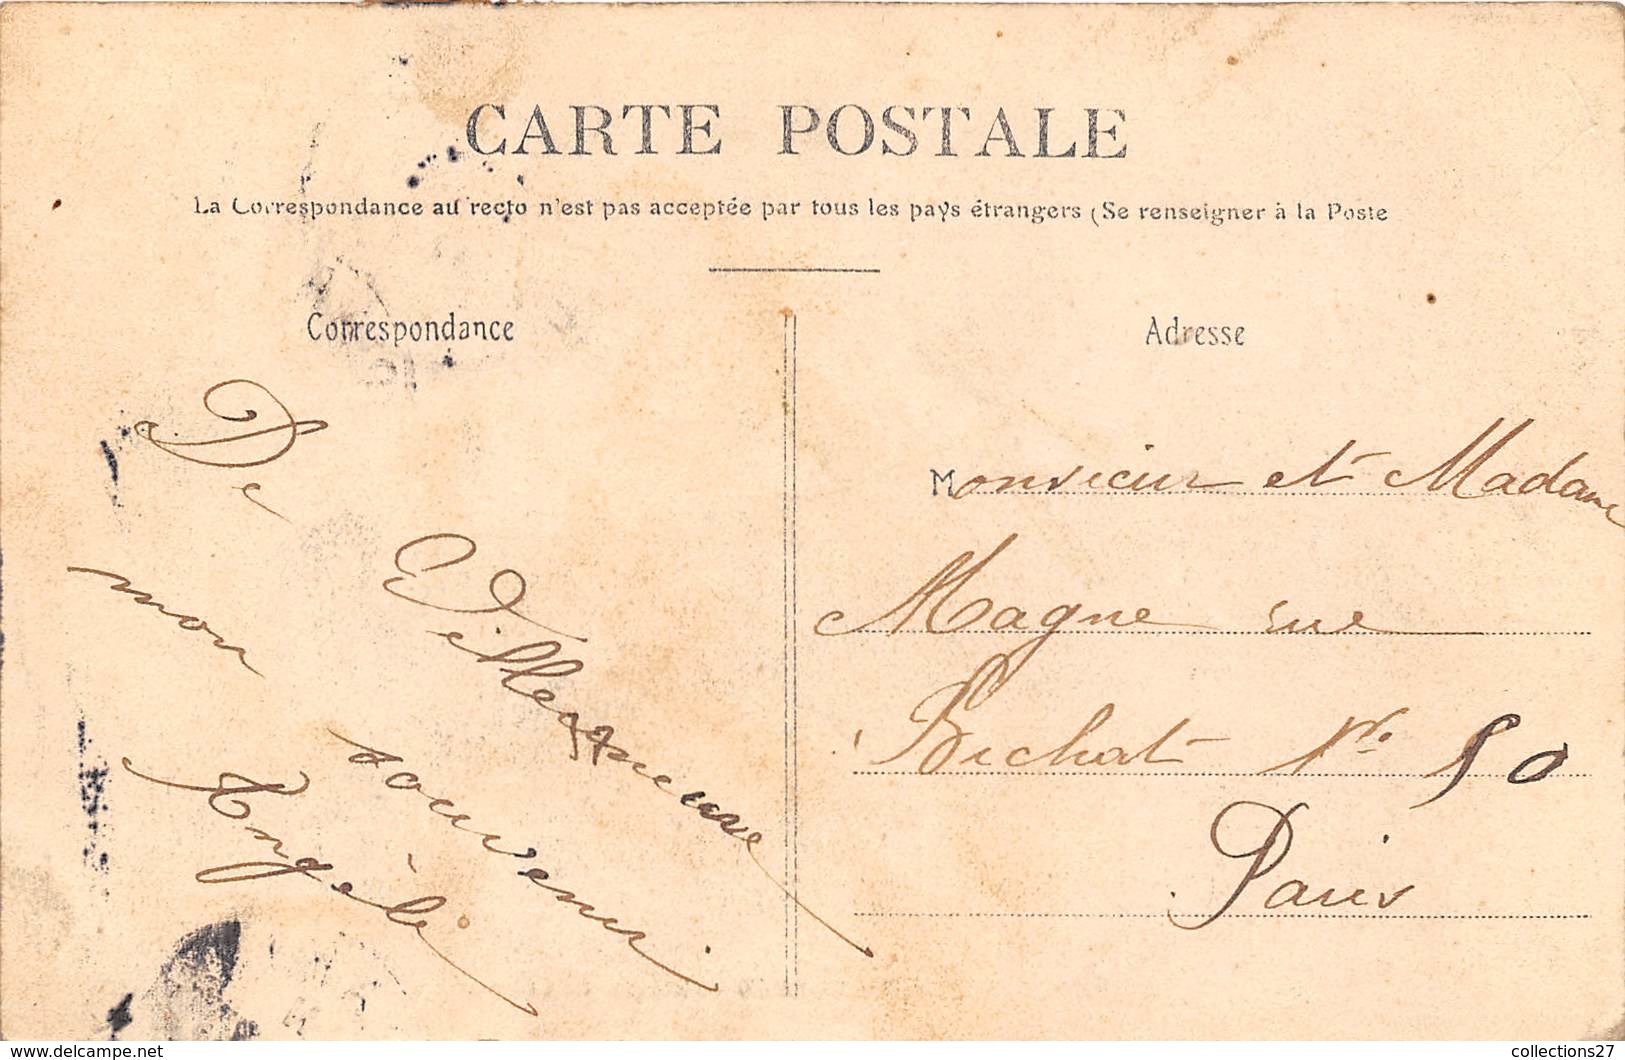 CARTE POSTALE
La Correspondance au recto n'est pas acceptée par tous les pays étrangers (Se renseigner à la Poste
Correspondance
De Villegneuve
mon souvenir
Angèle
Adresse
Monsieur et Madame
Magne rue
Bichat No. 50
Paris
https://www.delcampe.net
collections27